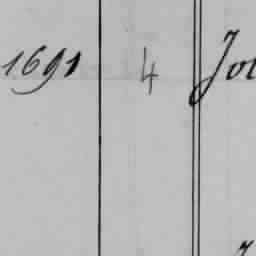 1691 4 Jo